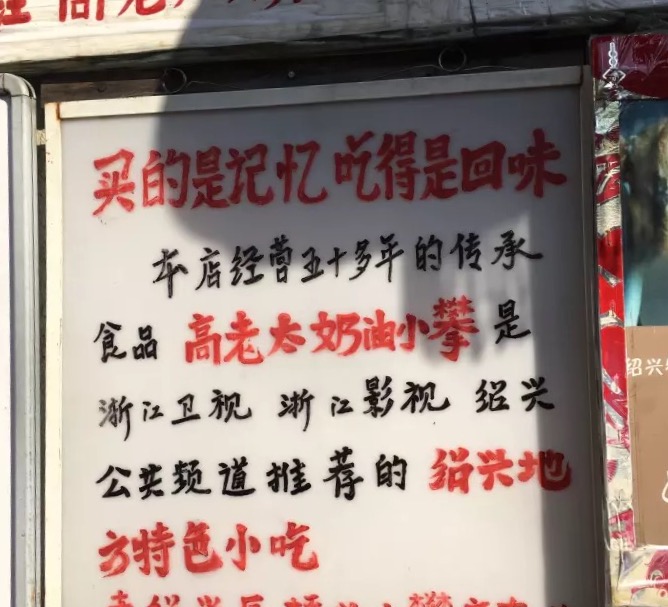 买的是记忆 吃得是回味
本店经营五十多年的传承
食品 高老太奶油小攀 是
浙江卫视 浙江影视 绍兴
公共频道推荐的 绍兴地
方特色小吃
绍兴